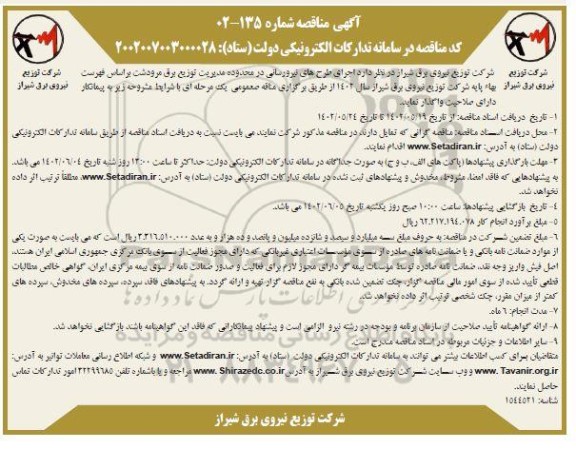 آگهی مناقصه شماره ۱۳۵-۰۲
کد مناقصه در سامانه تدارکات الکترونیکی دولت (ستاد): ۲۰۰۲۰۰۷۰۰۳۰۰۰۰۲۸
شرکت توزیع نیروی برق شیراز
شرکت توزیع نیروی برق شیراز
شرکت توزیع نیروی برق شیراز در نظر دارد اجرای طرح های نیرورسانی در محدوده مدیریت توزیع برق مرودشت براساس فهرست
بهاء پایه شرکت توزیع نیروی برق شیراز سال ۱۴۰۲ از طریق برگزاری مناقصه عمومی یک مرحله ای با شرایط مشروحه زیر به پیمانکار
دارای صلاحیت واگذار نماید.
۱- تاریخ دریافت اسناد مناقصه: از تاریخ ۱۴۰۲/۰۵/۱۹ تا تاریخ ۱۴۰۲/۰۵/۲۴
۲- محل دریافت اسناد مناقصه: مناقصه گرانی که تمایل دارند در مناقصه مذکور شرکت نمایند، می بایست نسبت به دریافت اسناد مناقصه از طریق سامانه تدارکات الکترونیکی
دولت (ستاد) به آدرس: www.Setadiran.ir اقدام نمایند.
۳- مهلت بارگذاری پیشنهادها (پاکت های الف، ب و ج) به صورت جداگانه در سامانه تدارکات الکترونیکی دولت: حداکثر تا ساعت ۱۳:۰۰ روز شنبه تاریخ ۱۴۰۲/۰۶/۰۴ می باشد.
به پیشنهادهایی که فاقد امضا، مشروط، مخدوش و پیشنهادهای ثبت نشده در سامانه تدارکات الکترونیکی دولت (ستاد) به آدرس: www.Setadiran.ir، مطلقاً ترتیب اثر داده
نخواهد شد.
۴- تاریخ بازگشایی پیشنهادها: ساعت ۱۰:۰۰ صبح روز یکشنبه تاریخ ۱۴۰۲/۰۶/۰۵ می باشد.
۵- مبلغ برآورد انجام کار ۶۲،۲۱۷،۱۹۴،۰۷۸ ریال
۶- مبلغ تضمین شرکت در مناقصه: به حروف مبلغ سه میلیارد و سیصد و شانزده میلیون و پانصد و ده هزار و به عدد ۳،۳۱۶،۵۱۰،۰۰۰ ریال است که می بایست به صورت یکی
از موارد ضمانت نامه بانکی و یا ضمانت نامه های صادره از سوی مؤسسات اعتباری غیربانکی که دارای مجوز فعالیت از سوی بانک مرکزی جمهوری اسلامی ایران هستند،
اصل فیش واریز وجه نقد، ضمانت نامه صادره توسط موسسات بیمه گر دارای مجوز لازم برای فعالیت و صدور ضمانت نامه از سوی بیمه مرکزی ایران، گواهی خالص مطالبات
قطعی تأیید شده از سوی امور مالی مناقصه گزار، چک تضمین شده بانکی به نفع مناقصه گزار تهیه و ارائه گردد. به پیشنهادهای فاقد سپرده، سپرده های مخدوش، سپرده های
کمتر از میزان مقرر، چک شخصی ترتیب اثر داده نخواهد شد.
۷- مدت انجام: ۶ ماه.
۸- ارائه گواهینامه تأیید صلاحیت از سازمان برنامه و بودجه در رشته نیرو الزامی است و پیشنهاد پیمانکارانی که فاقد این گواهینامه باشد بازگشایی نخواهد شد.
۹- سایر اطلاعات و جزئیات مربوطه در اسناد مناقصه مندرج است.
متقاضیان برای کسب اطلاعات بیشتر می توانند به سامانه تدارکات الکترونیکی دولت (ستاد) به آدرس: www.Setadiran.ir و شبکه اطلاع رسانی معاملات توانیر به آدرس:
www.Tavanir.org.ir و وب سایت شرکت توزیع نیروی برق شیراز به آدرس www.Shirazedc.co.ir مراجعه و یا با شماره تلفن ۳۲۲۹۹۶۸۵ امور تدارکات تماس
حاصل نمایند.
شناسه: ۱۵۴۴۵۲۱
شرکت توزیع نیروی برق شیراز